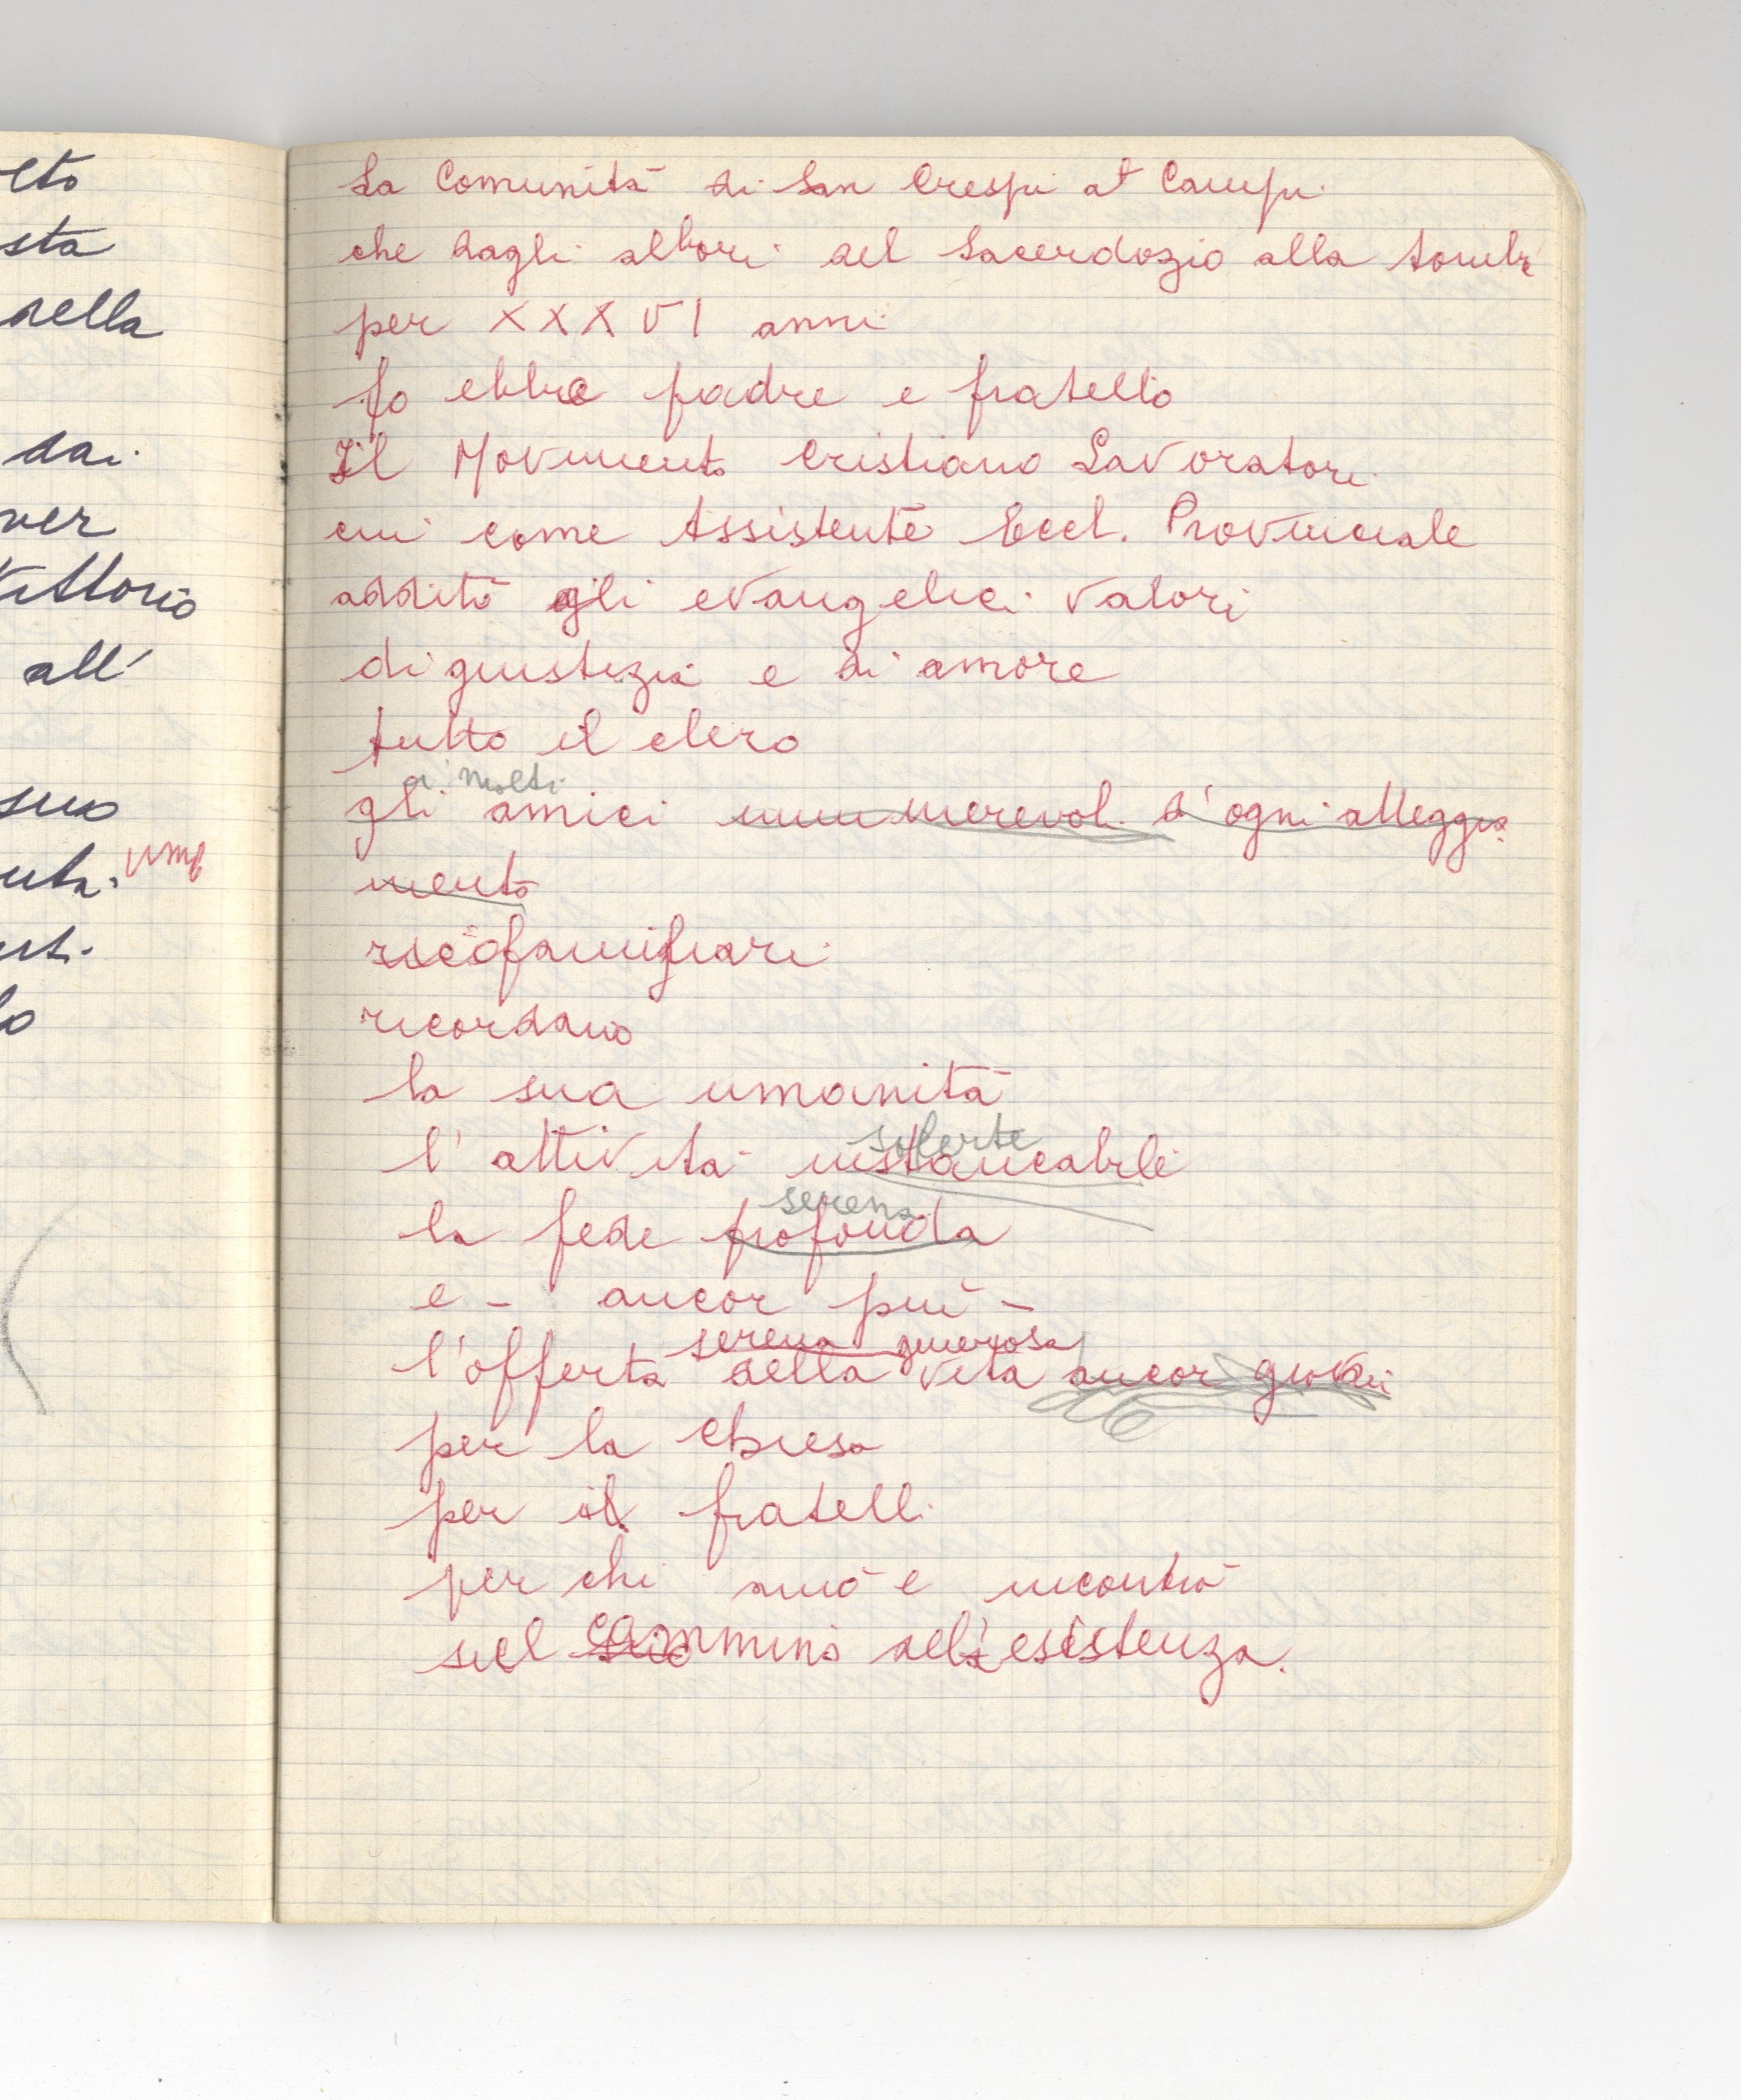 La Comunità di San Crespi at Campi
che dagli albori del Sacerdozio alla tomba
per XXXVI anni
lo ebbe padre e fratello
Il Movimento Cristiano Lavoratori
cui come Assistente Eccl. Provinciale
additò gli evangelici valori
di giustizia e di amore
tutto il clero
i molti
gli amici innumerevoli d'ogni atteggia
mento
familiari
ricordano
la sua umanità
solerte
l'attività instancabile
serena
la fede profonda
e - ancor più -
serena generosa
l'offerta della vita ancor giovane
per la Chiesa
per i fratelli
per chi amò e incontrò
sul cammino dell'esistenza.
elto
sta
della
dai
ver
Vittorio
all'
suo
ume
lo